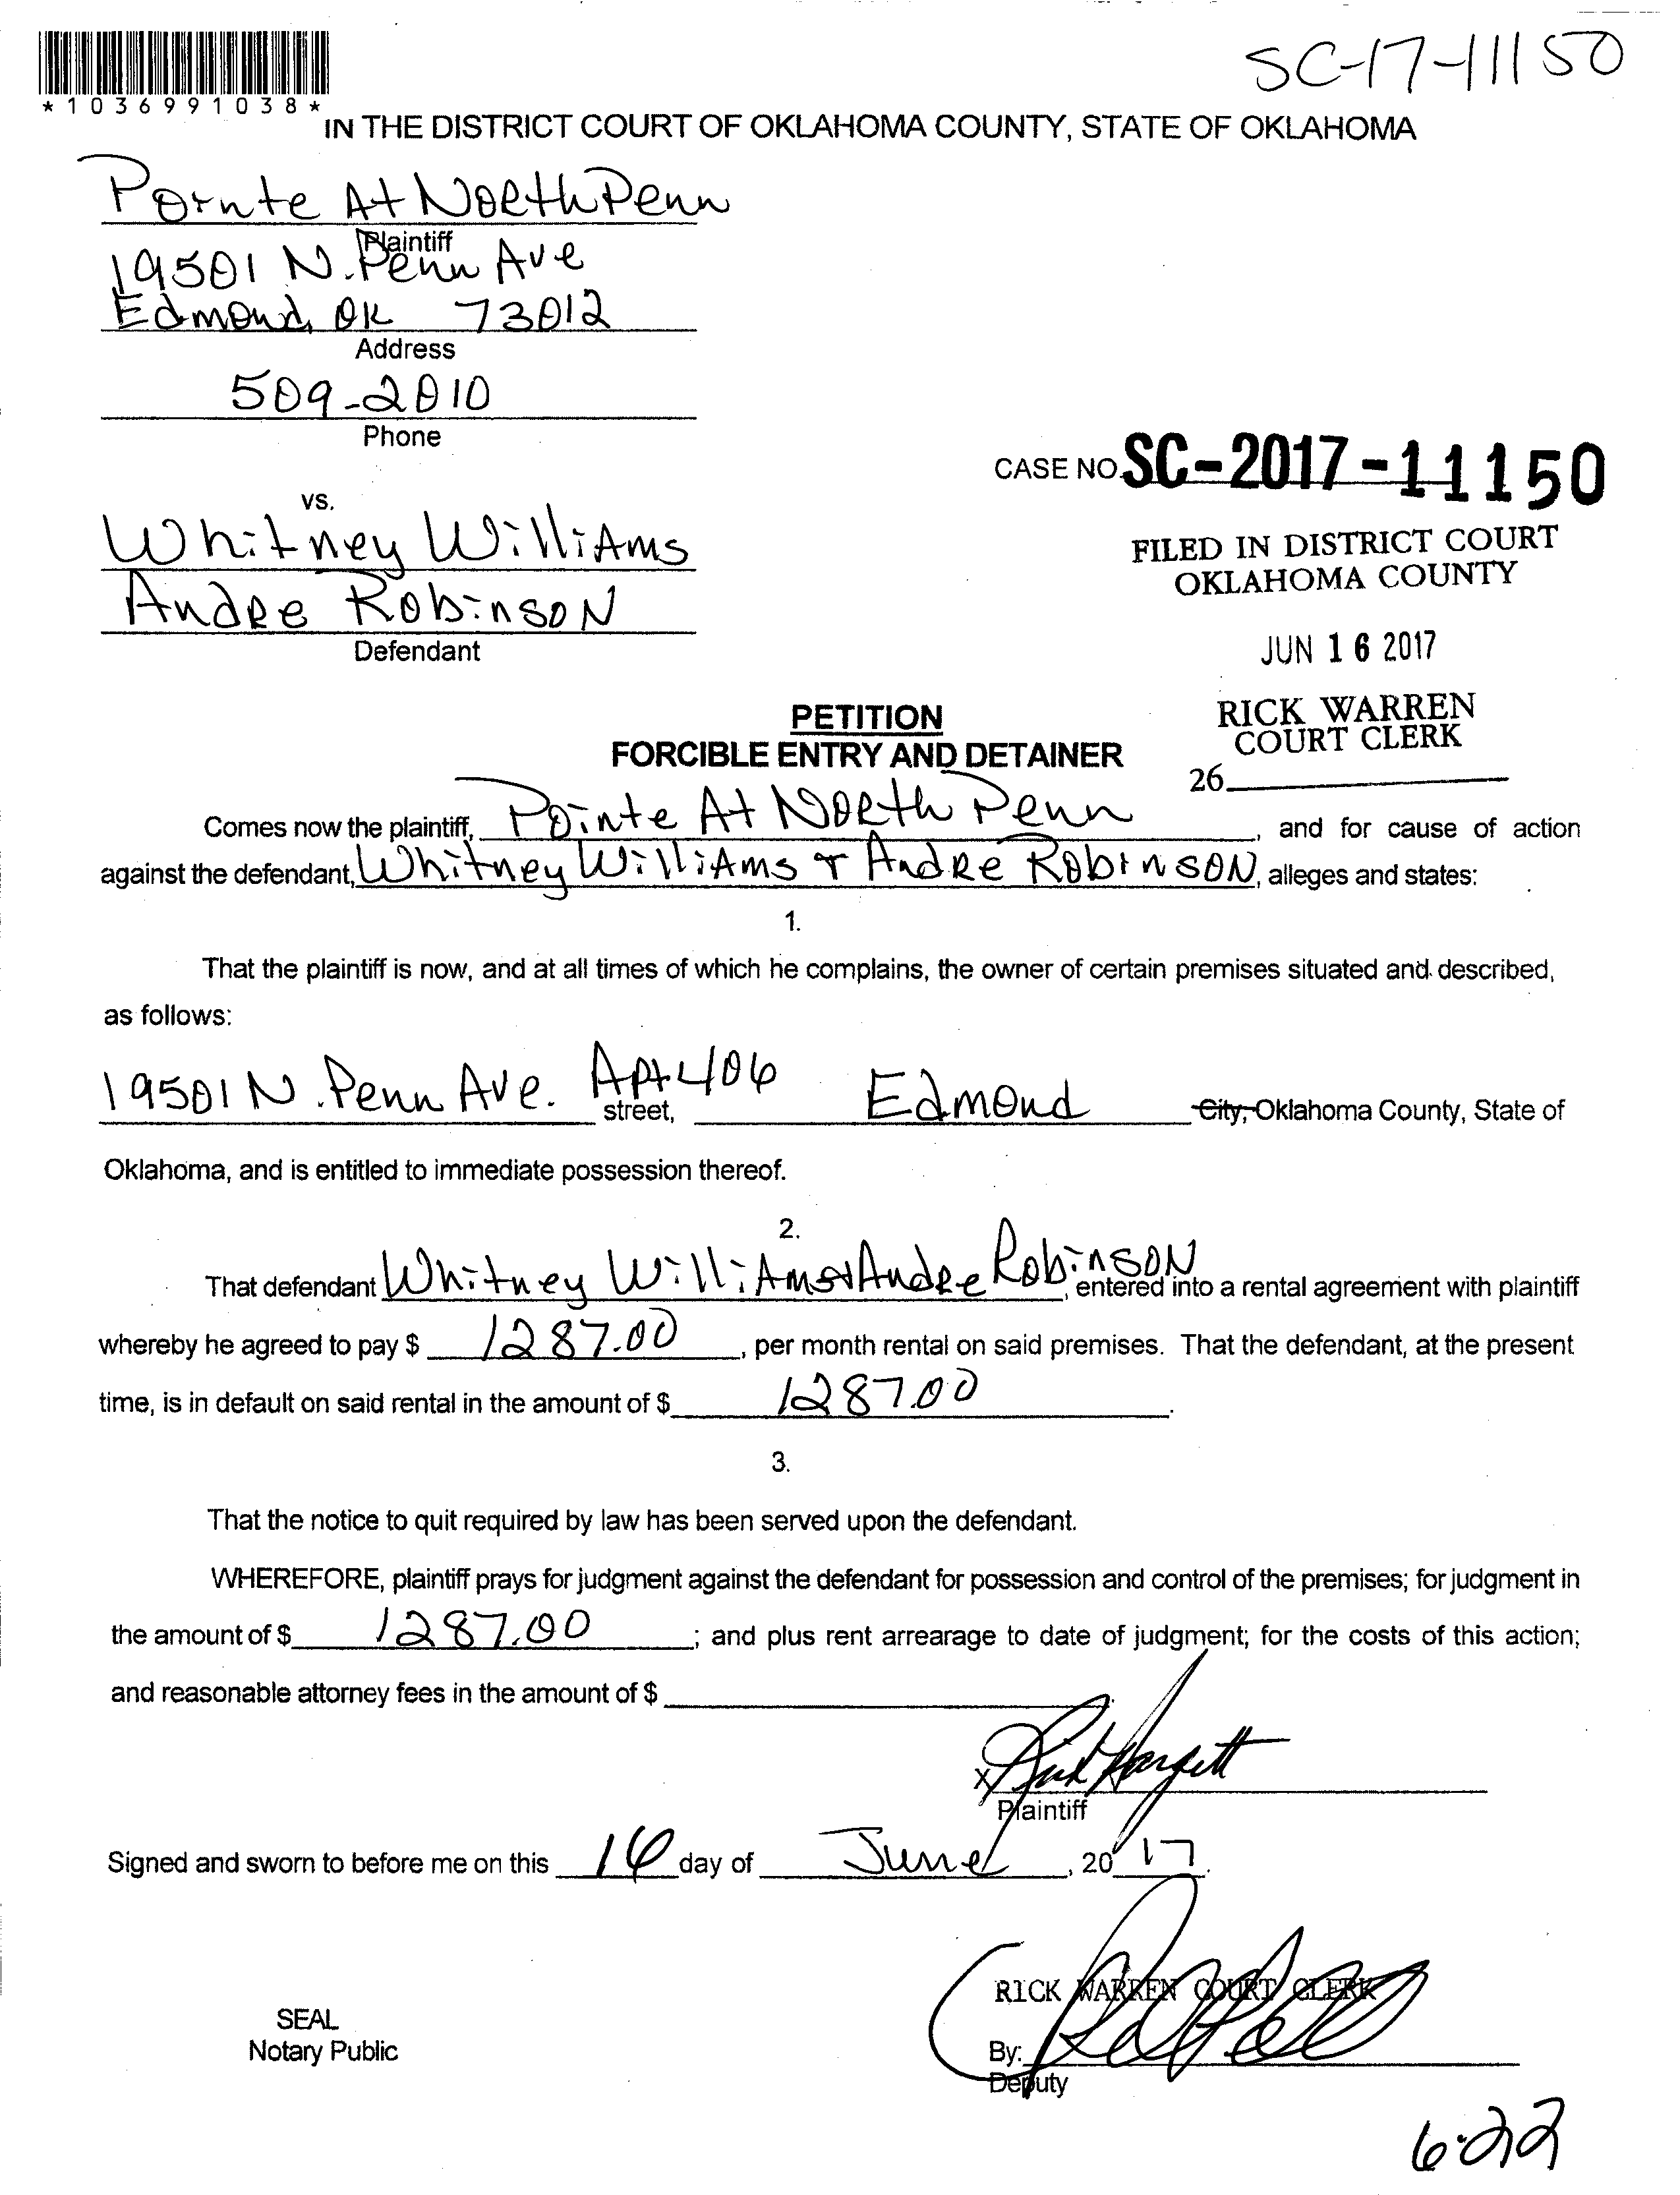 SC-17-11150
*1036991038*
IN THE DISTRICT COURT OF OKLAHOMA COUNTY, STATE OF OKLAHOMA
Pointe At North Penn
Plaintiff
19501 N. Penn Ave
Edmond, OK 73012
Address
509-2010
Phone
CASE NO. SC-2017-11150
vs.
Whitney Williams
FILED IN DISTRICT COURT
OKLAHOMA COUNTY
Andre Robinson
Defendant
JUN 16 2017
PETITION
RICK WARREN
COURT CLERK
FORCIBLE ENTRY AND DETAINER
26
Comes now the plaintiff, Pointe At North Penn, and for cause of action
against the defendant, Whitney Williams + Andre Robinson, alleges and states:
1.
That the plaintiff is now, and at all times of which he complains, the owner of certain premises situated and described,
as follows:
19501 N. Penn Ave. Apt 406 street, Edmond City, Oklahoma County, State of
Oklahoma, and is entitled to immediate possession thereof.
2.
That defendant Whitney Williams + Andre Robinson, entered into a rental agreement with plaintiff
whereby he agreed to pay $ 1287.00, per month rental on said premises. That the defendant, at the present
time, is in default on said rental in the amount of $ 1287.00.
3.
That the notice to quit required by law has been served upon the defendant.
WHEREFORE, plaintiff prays for judgment against the defendant for possession and control of the premises; for judgment in
the amount of $ 1287.00; and plus rent arrearage to date of judgment; for the costs of this action;
and reasonable attorney fees in the amount of $
X
Plaintiff
Signed and sworn to before me on this 16 day of June, 2017.
RICK WARREN COURT CLERK
SEAL
Notary Public
By:
Deputy
6-22